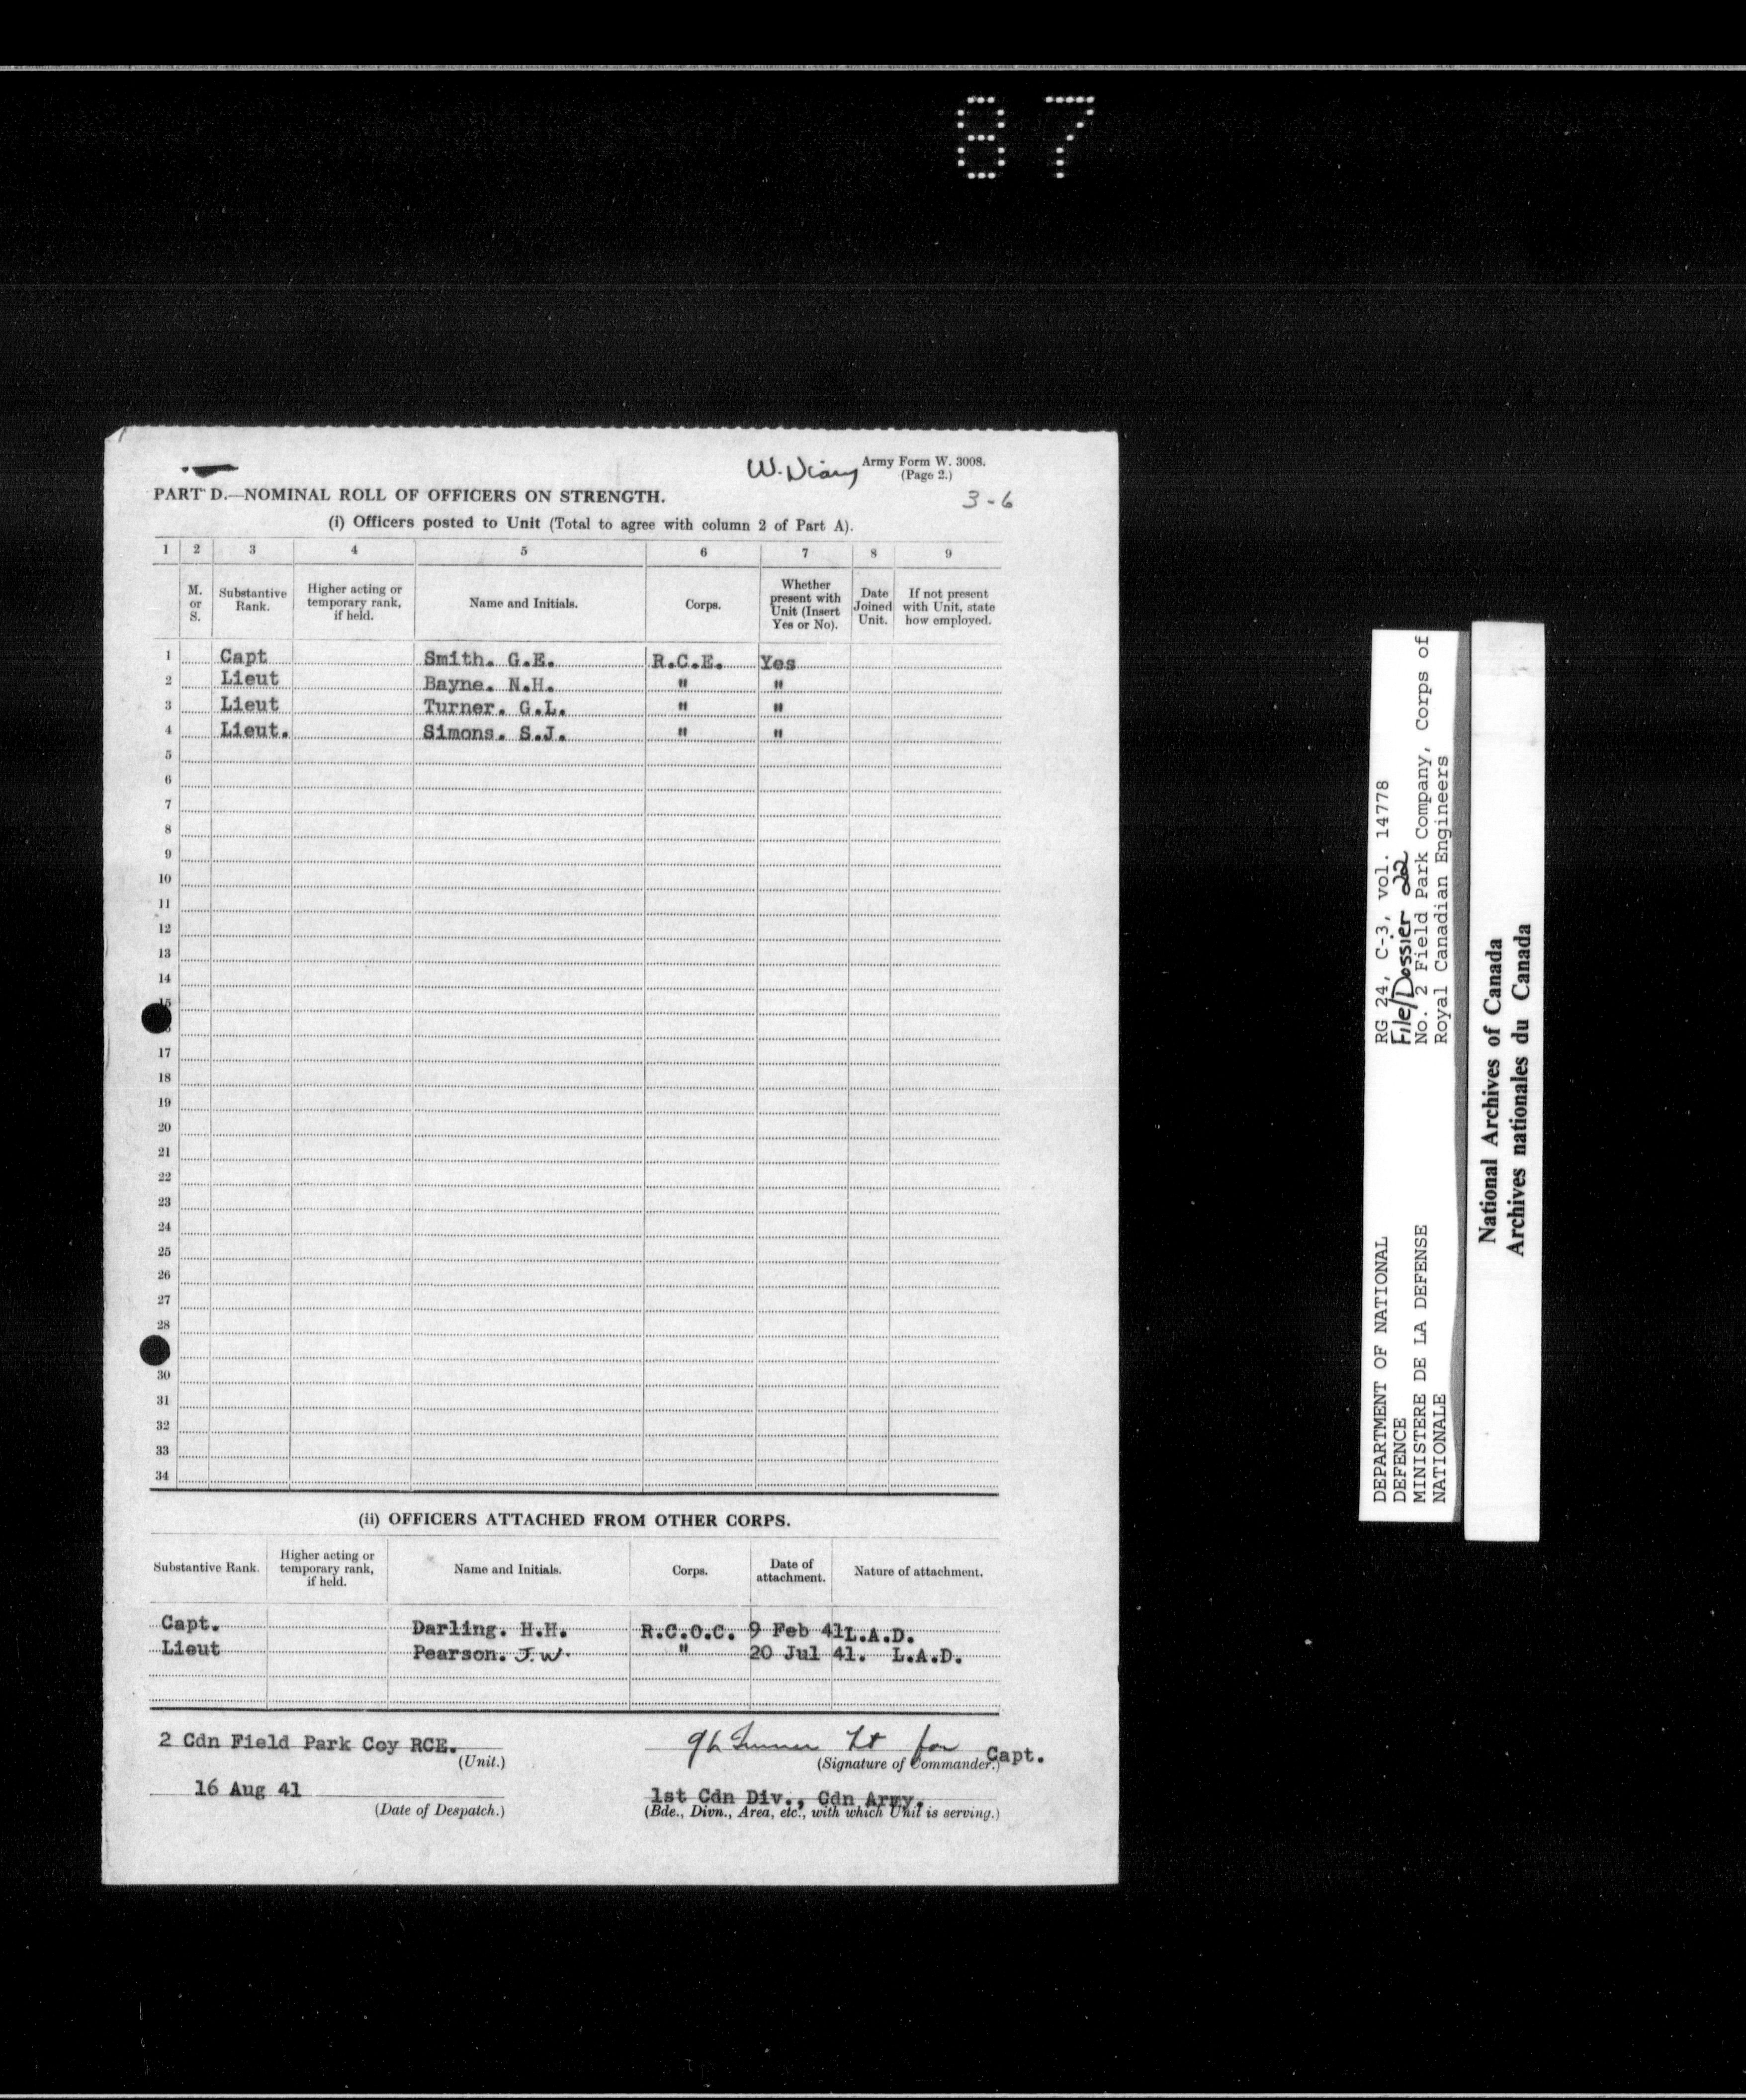 87
W. Diary Army Form W. 3008.
(Page 2.)
3-6
PART D.—NOMINAL ROLL OF OFFICERS ON STRENGTH.
(i) Officers posted to Unit (Total to agree with column 2 of Part A).
1 2 3 4 5 6 7 8 9
M. or S. Substantive Rank. Higher acting or temporary rank, if held. Name and Initials. Corps. Whether present with Unit (Insert Yes or No). Date Joined Unit. If not present with Unit, state how employed.
1 Capt Smith. G.E. R.C.E. Yes
2 Lieut Bayne. N.H. " "
3 Lieut Turner. G.L. " "
4 Lieut. Simons. S.J. " "
5
6
7
8
9
10
11
12
13
14
15
17
18
19
20
21
22
23
24
25
26
27
28
30
31
32
33
34
(ii) OFFICERS ATTACHED FROM OTHER CORPS.
Substantive Rank. Higher acting or temporary rank, if held. Name and Initials. Corps. Date of attachment. Nature of attachment.
Capt. Darling. H.H. R.C.O.C. 9 Feb 41 L.A.D.
Lieut Pearson. J.W. " 20 Jul 41. L.A.D.
2 Cdn Field Park Coy RCE.
(Unit.)
G L Turner Lt for Capt.
(Signature of Commander.)
16 Aug 41
(Date of Despatch.)
1st Cdn Div., Cdn Army.
(Bde., Divn., Area, etc., with which Unit is serving.)
DEPARTMENT OF NATIONAL
DEFENCE
MINISTERE DE LA DEFENSE
NATIONALE
RG 24, C-3, vol. 14778
File/Dossier 22
No. 2 Field Park Company, Corps of
Royal Canadian Engineers
National Archives of Canada
Archives nationales du Canada